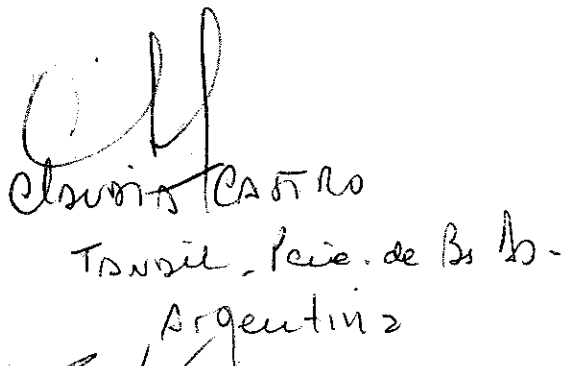 Claudia CASTRO
TANDIL - Pcia. de Bs As-
Argentina